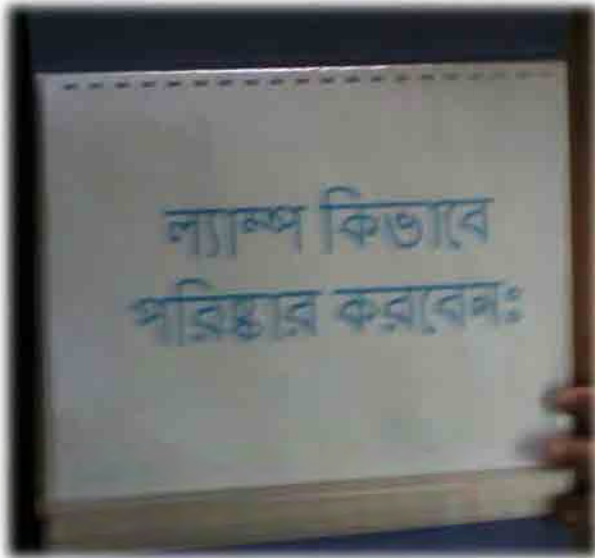 ল্যাম্প কিভাবে
পরিষ্কার করবেন: